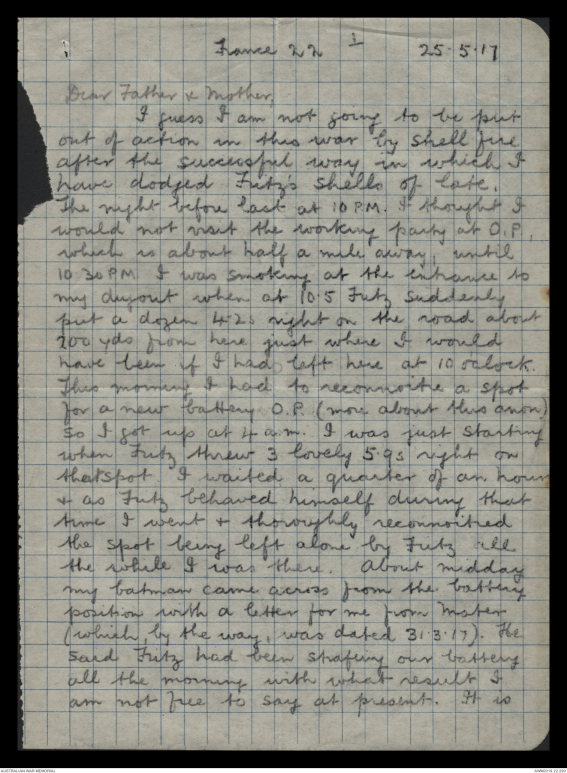 France 22 1 25-5-17
Dear Father & Mother,
I guess I am not going to be put
out of action in this war by shell fire
after the successful way in which I
have dodged Fritz's shells of late.
The night before last at 10 P.M. I thought I
would not visit the working party at O.P.,
which is about half a mile away, until
10.30 P.M. I was smoking at the entrance to
my dugout when at 10.5 Fritz suddenly
put a dozen 4.2s right on the road about
200 yds from here just where I would
have been if I had left here at 10 oclock.
This morning I had to reconnoitre a spot
for a new battery O.P. (more about this anon)
so I got up at 4 a.m. I was just starting
when Fritz threw 3 lovely 5.9s right on
that spot. I waited a quarter of an hour
& as Fritz behaved himself during that
time I went & thoroughly reconnoitred
the spot being left alone by Fritz all
the while I was there. About midday
my batman came across from the battery
position with a letter for me from Mater
(which, by the way, was dated 31.3.17). He
said Fritz had been strafing our battery
all the morning with what result I
am not free to say at present. It is
AUSTRALIAN WAR MEMORIAL